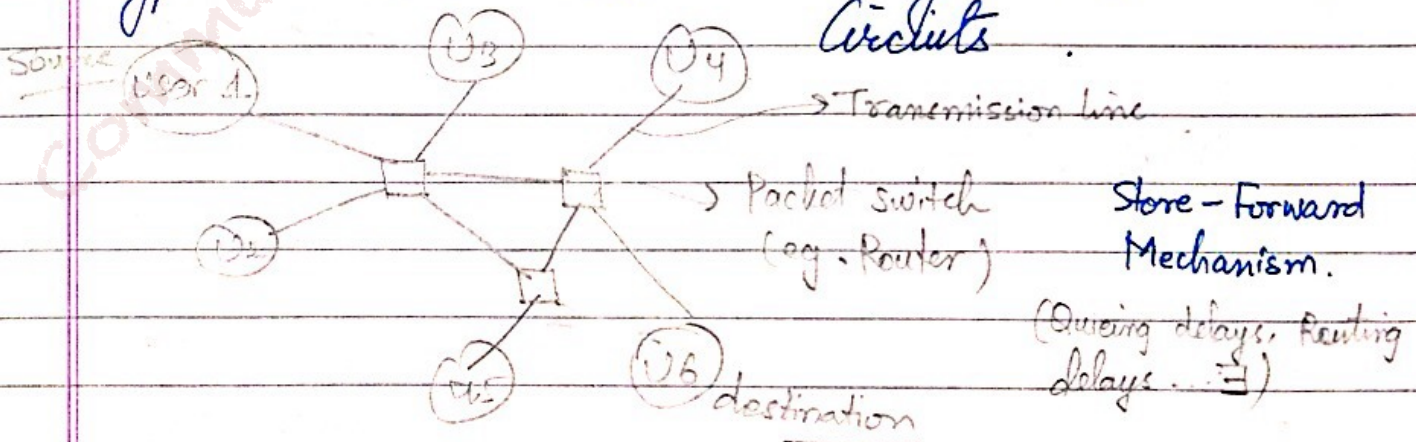 Circiuts.
Source
User 1.
U3
U4
Transmission line
Packet switch
(eg. Router)
Store - Forward
Mechanism.
U2
(Queing delays, Routing
delays... ∃)
U5
U6
destination
Comm